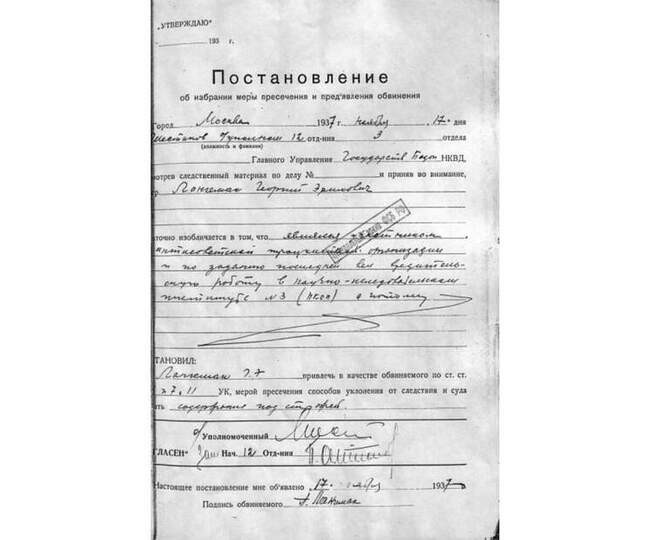 „УТВЕРЖДАЮ"
193 г.
Постановление
об избрании меры пресечения и пред'явления обвинения
Город Москва 1937 г. ноября 17 дня
12 отд-ния 3 отдела
(должность и фамилия)
Главного Управления Государств НКВД,
отрев следственный материал по делу № и приняв во внимание,
Лангемак Георгий Эрихович
аточно изобличается в том, что является участником
антисоветской организации
и по заданию последней вел вредитель-
скую работу в научно-исследовательском
институте №3 а потому
ТАНОВИЛ:
Лангемак Г. Э. привлечь в качестве обвиняемого по ст. ст.
7, 11 УК, мерой пресечения способов уклонения от следствия и суда
ать содержание под стражей.
Уполномоченный
ГЛАСЕН" Нач. 12 Отд-ния
Настоящее постановление мне об'явлено 17 ноября 1937
Подпись обвиняемого Г. Лангемак